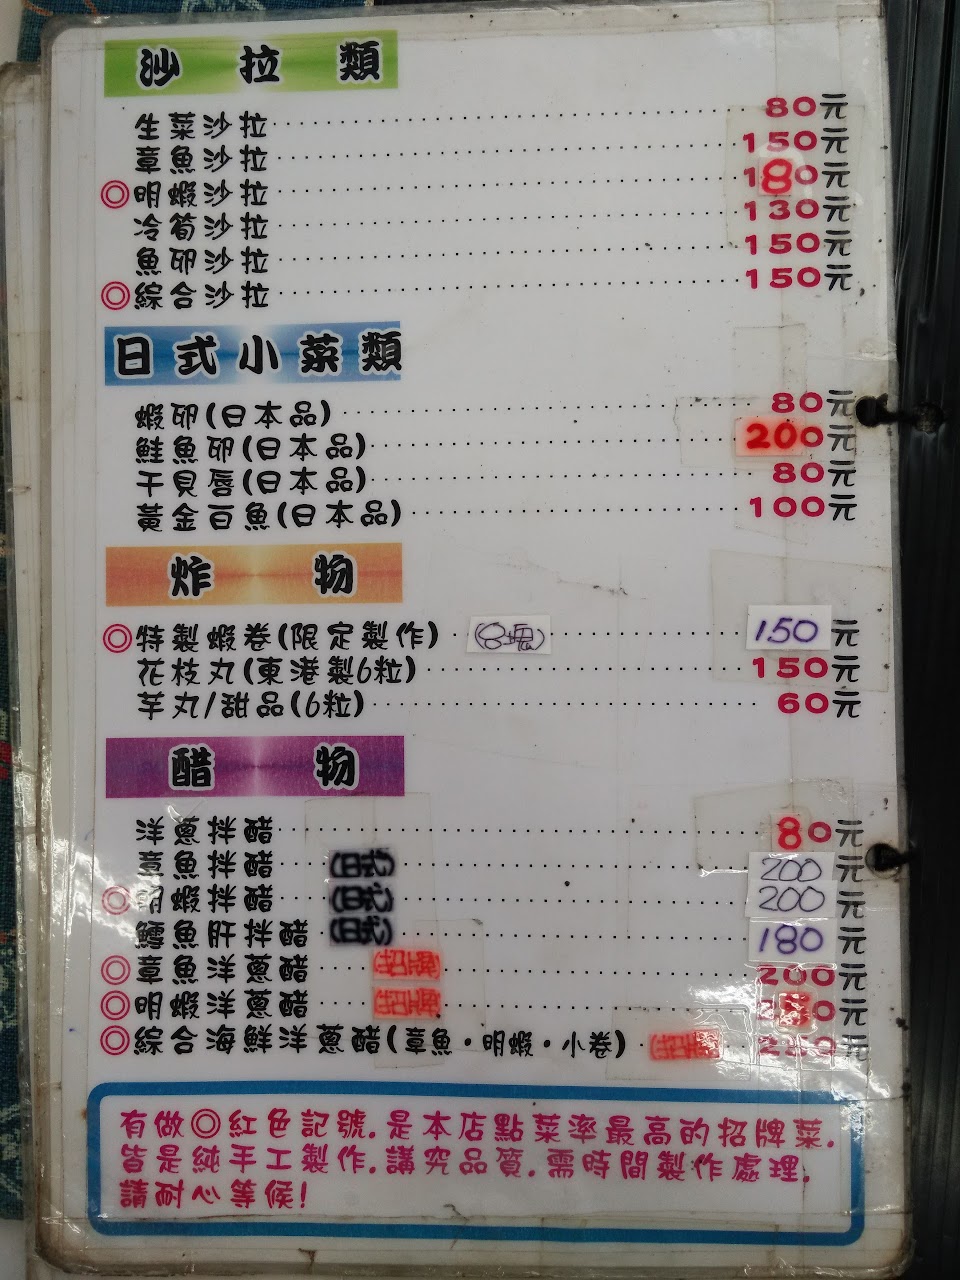 沙拉類
生菜沙拉 80元
章魚沙拉 150元
◎明蝦沙拉 180元
冷筍沙拉 130元
魚卵沙拉 150元
◎綜合沙拉 150元
日式小菜類
蝦卵(日本品) 80元
鮭魚卵(日本品) 200元
干貝唇(日本品) 80元
黃金百魚(日本品) 100元
炸物
◎特製蝦卷(限定製作) (8塊) 150元
花枝丸(東港製6粒) 150元
芋丸/甜品(6粒) 60元
醋物
洋蔥拌醋 80元
章魚拌醋 (日式) 200元
◎明蝦拌醋 (日式) 200元
鱈魚肝拌醋 (日式) 180元
◎章魚洋蔥醋 招牌 200元
◎明蝦洋蔥醋 招牌 元
◎綜合海鮮洋蔥醋(章魚·明蝦·小卷) 招牌 元
有做◎紅色記號.是本店點菜率最高的招牌菜.
皆是純手工製作.講究品質.需時間製作處理.
請耐心等候!